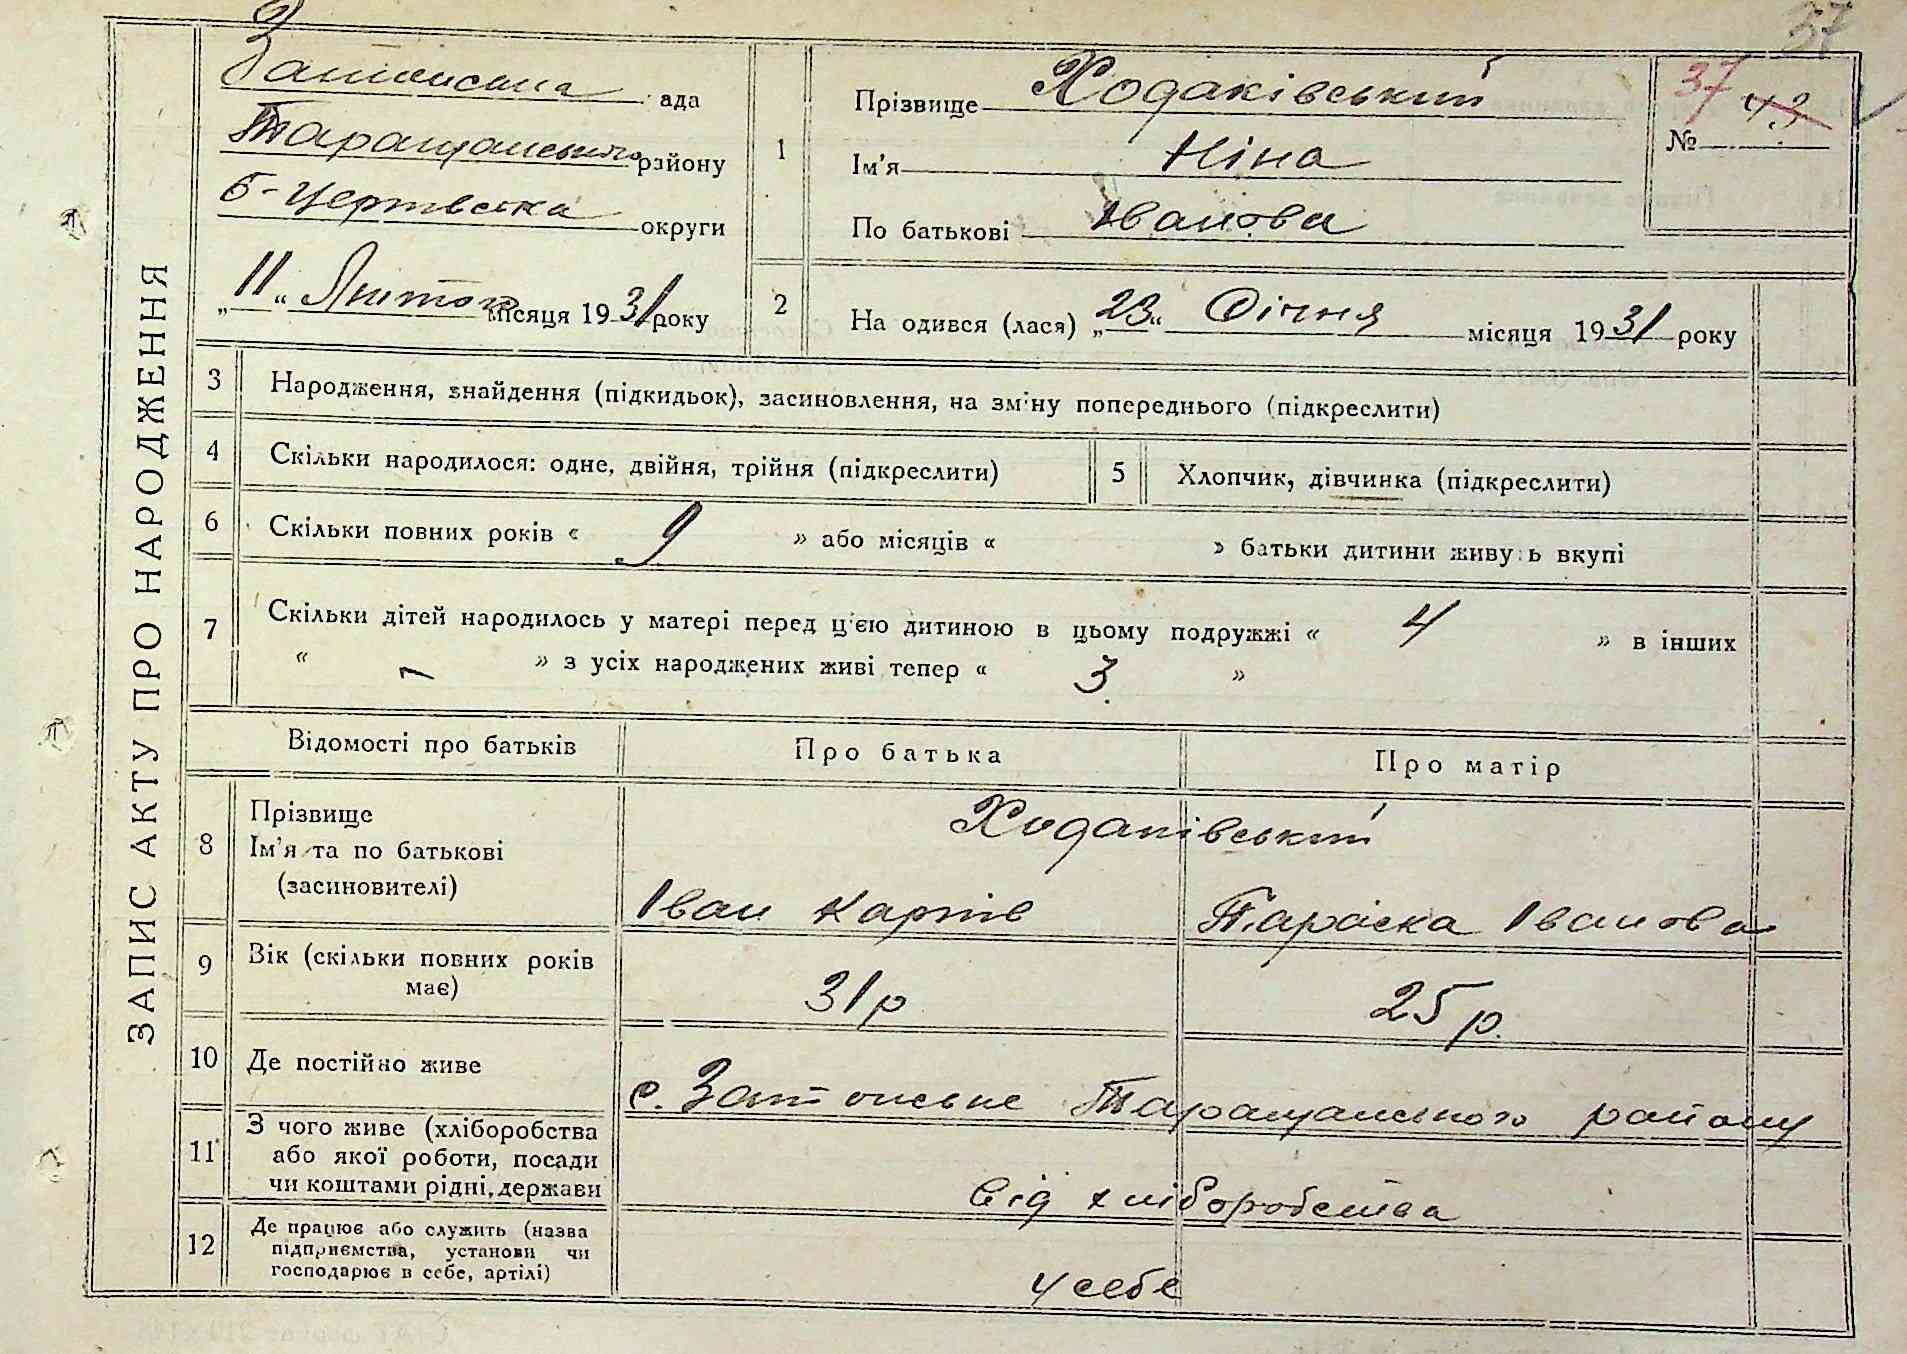 37
ЗАПИС АКТУ ПРО НАРОДЖЕННЯ
ада
Таращанського району
Б-Церківська округи
„11“ Лютого місяця 1931 року
1
Прізвище Ходаківський
Ім'я Ніна
По батькові Іванова
37 43
№
2
На одився (лася) „23“ Січня місяця 1931 року
3 Народження, знайдення (підкидьок), засиновлення, на зміну попереднього (підкреслити)
4 Скільки народилося: одне, двійня, трійня (підкреслити)
5 Хлопчик, дівчинка (підкреслити)
6 Скільки повних років « 9 » або місяців « » батьки дитини живуть вкупі
7 Скільки дітей народилось у матері перед ц'єю дитиною в цьому подружжі « 4 » в інших
« – » з усіх народжених живі тепер « 3 »
Відомості про батьків
Про батька
Про матір
8 Прізвище
Ім'я та по батькові
(засиновителі)
Ходаківський
Іван Карпів
Параска Іванова
9 Вік (скільки повних років
має)
31 р
25 р.
10 Де постійно живе
с. Затонське Таращанського району
11 З чого живе (хліборобства
або якої роботи, посади
чи коштами рідні, держави
Від хліборобства
12 Де працює або служить (назва
підприємства, установи чи
господарює в себе, артілі)
у себе